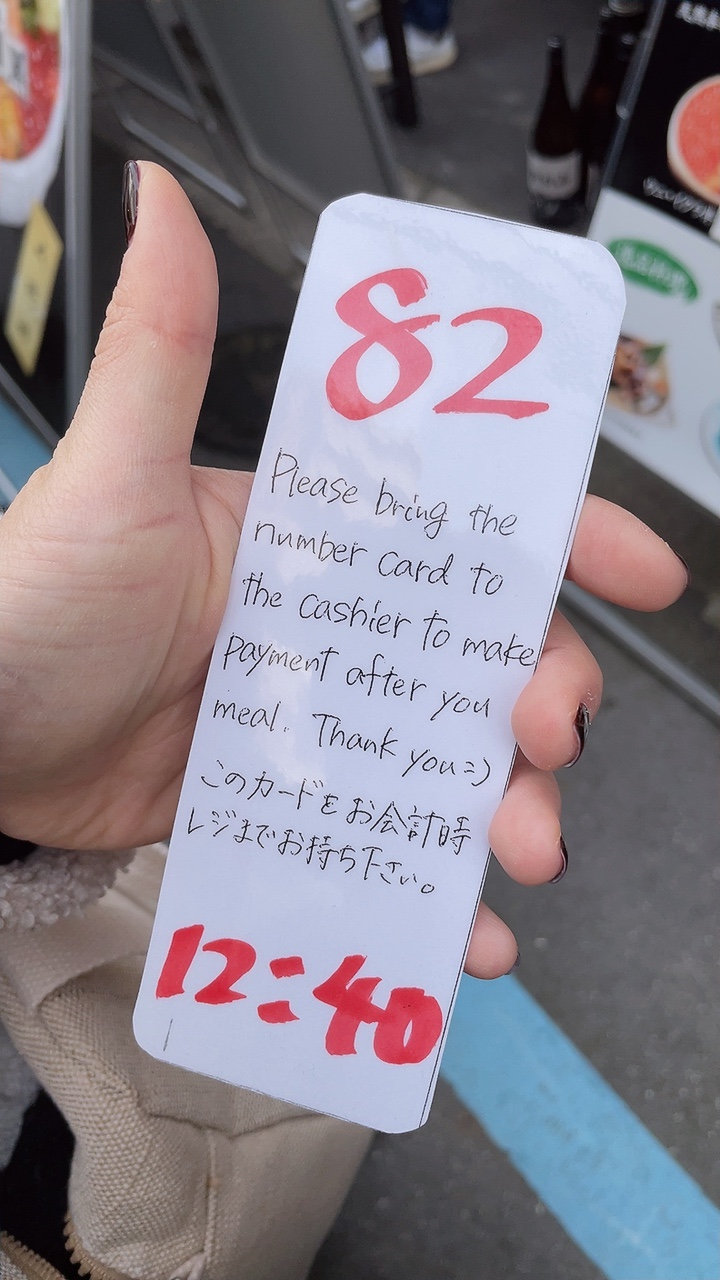 82
Please bring the
number card to
the cashier to make
payment after you
meal. Thank you=)
このカードをお会計時
レジまでお持ち下さい。
12:40